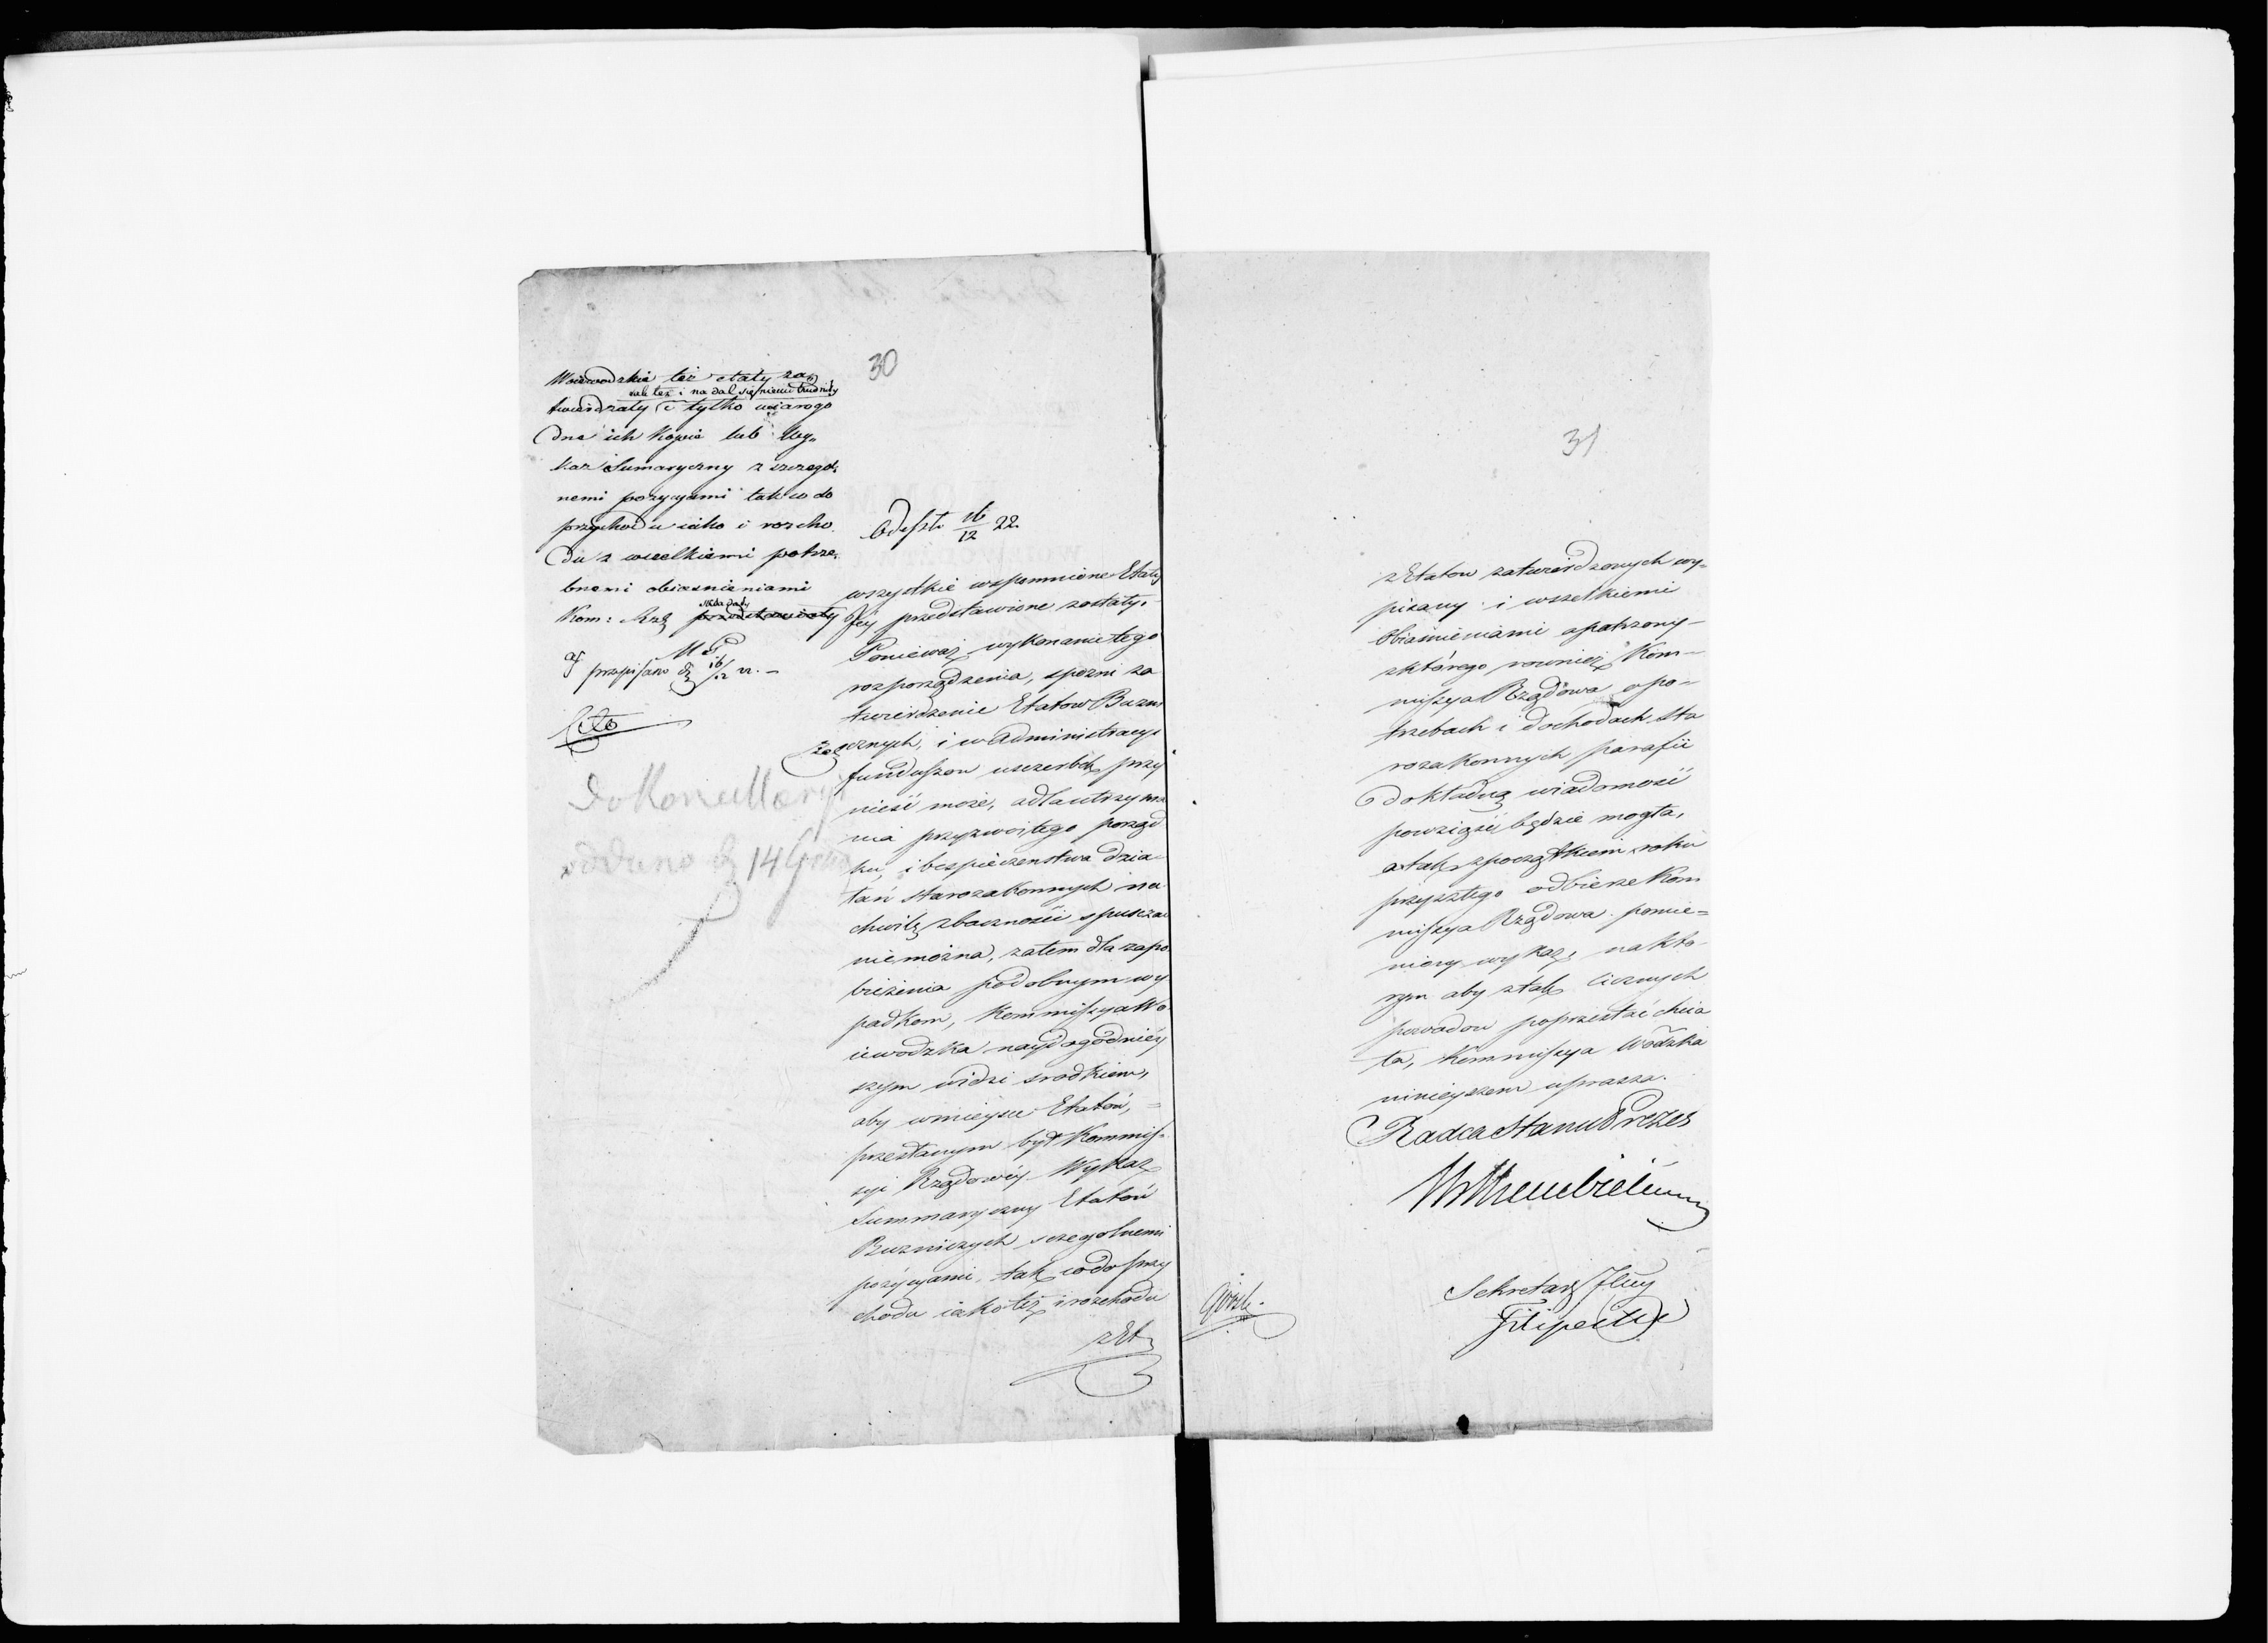 30
Woiewodzkie też etaty za„
iak też i nadal się niemi trudniły
twierdzały i tylko wiarogo
dne ich Kopie lub Wy„
kaz Sumaryczny z szczegól„
nemi pozycyami tak co do
przychodu iako i rozcho„
du z wszelkiemi potrze„
bnemi obiasnieniami
składały
Kom: Rzą przedstawiały
przepisano d 16/12 22. –
Cito
Do Kancellaryi
oddano d 14 Grud
Odeszło 16/12 22
wszystkie wspomnione Etaty
Jéy przedstawione zostały.
Ponieważ wykonanie tego
rozporządzenia, spozni za
twierdzenie Etatow Buzni
cznych, i w Administracyi
funduszow uszerbek przy
nieść może, a dla utrzyma
nia przyzwoitego porząd
ku, i bespieczenstwa dzia
łań Starozakonnych na
chwilę zbaczności spuszczać
nie można, zatem dla zapo
bieżenia podobnym wy
padkom, Kommissya Wo
iewodzka naydogodniéy
szym widzi srodkiem,
aby w mieysce Etatów,
przesłanym był Kommis-
syi Rządowéy Wykaz
Summaryczny Etatów
Buzniczych szczegolnemi
pozycyami, tak co do przy
chodu iako też i rozchodu
z Et
31
z Etatow zatwierdzonych wy=
pisany i wszelkiemi
Obiaśnieniami opatrzony –
z którego rownież Kom–
missya Rządowa o po–
trzebach i dochodach Sta
rozakonnych parafii
dokładną wiadomość
powziąść będzie mogła,
a tak z początkiem roku
przyszłego odbierze Kom
missya Rządowa pomie=
niony wykaz, na któ–
rym aby z tak licznych
powodow poprzestać chcia
ła, Kommissya Wodzka
ninieyszem uprasza.
Radca Stanu Prezes
Sekretarz Jlny
Filipecki